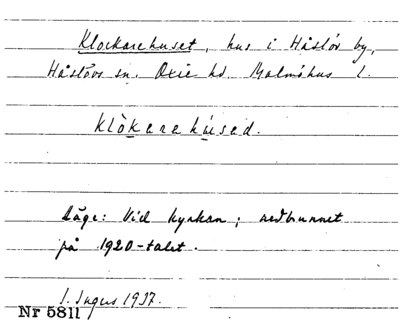 Klockarehuset, hus i Håslöv by,
Håslövs sn. Oxie hd. Malmöhus l.
Klòkarehùsed.
Läge: Vid kyrkan; nedbrunnet
på 1920-talet.
I. Ingers 1937.
Nr 5811